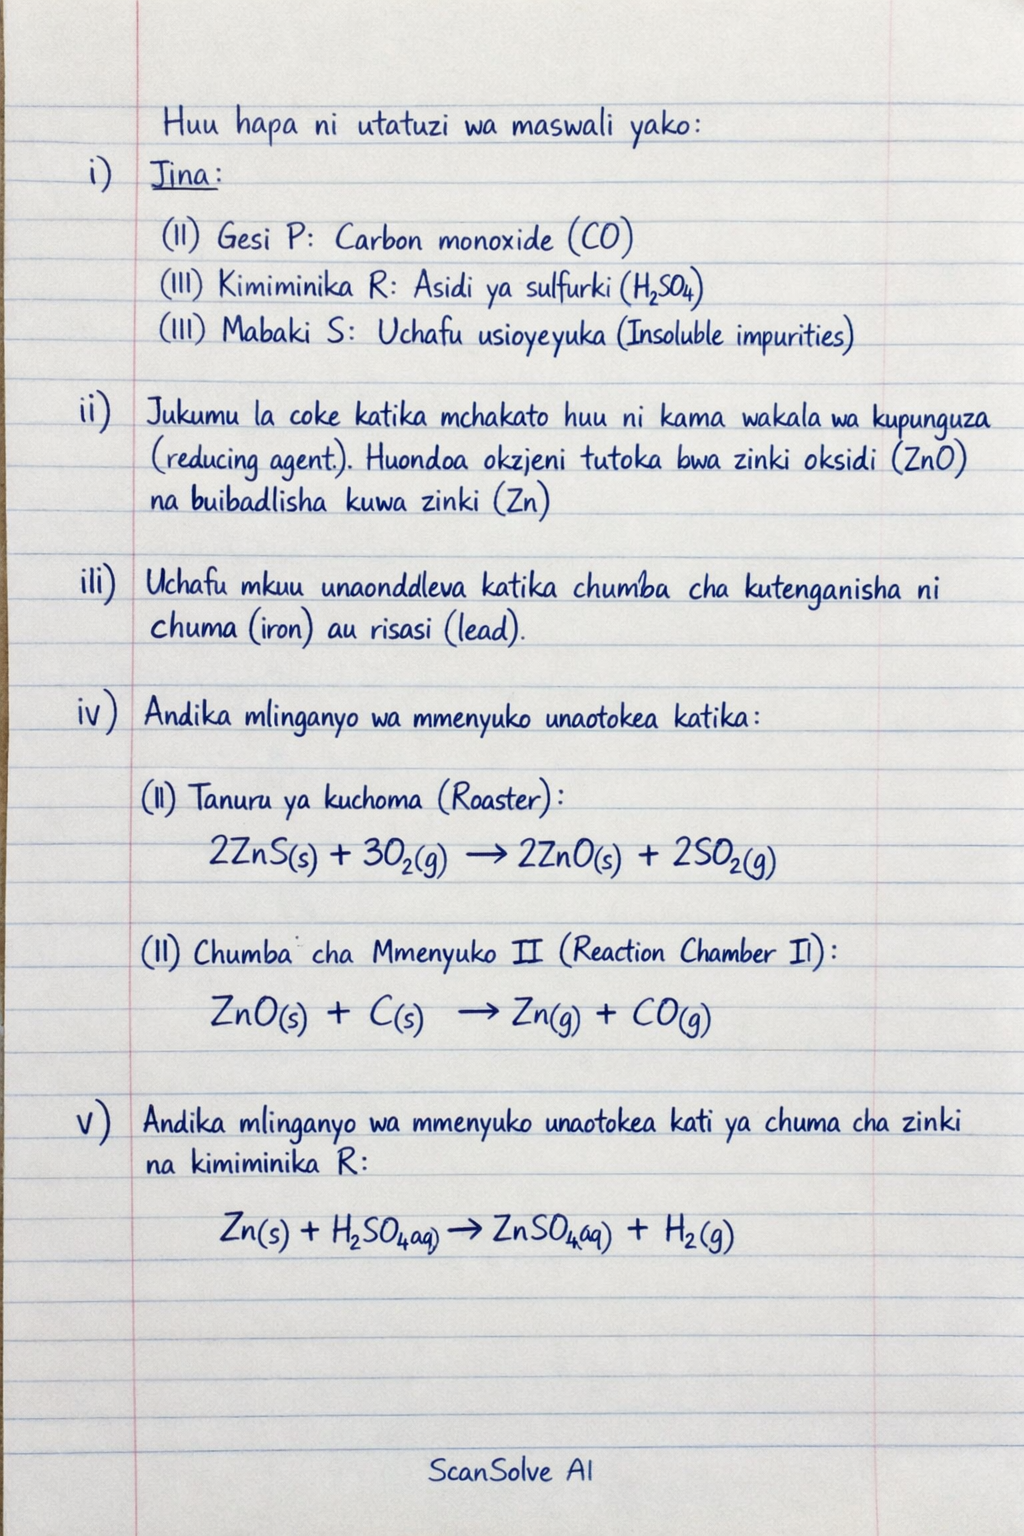 Huu hapa ni utatuzi wa maswali yako:
i) Jina:
(II) Gesi P: Carbon monoxide (CO)
(III) Kimiminika R: Asidi ya sulfurki (H₂SO₄)
(III) Mabaki S: Uchafu usioyeyuka (Insoluble impurities)
ii) Jukumu la coke katika mchakato huu ni kama wakala wa kupunguza
(reducing agent.). Huondoa okzjeni tutoka bwa zinki oksidi (ZnO)
na buibadlisha kuwa zinki (Zn)
ili) Uchafu mkuu unaonddleva katika chumba cha kutenganisha ni
chuma (iron) au risasi (lead).
iv) Andika mlinganyo wa mmenyuko unaotokea katika:
(II) Tanuru ya kuchoma (Roaster):
2ZnS(s) + 3O₂(g) → 2ZnO(s) + 2SO₂(g)
(II) Chumba cha Mmenyuko II (Reaction Chamber II):
ZnO(s) + C(s) → Zn(g) + CO(g)
v) Andika mlinganyo wa mmenyuko unaotokea kati ya chuma cha zinki
na kimiminika R:
Zn(s) + H₂SO₄aq) → ZnSO₄aq) + H₂(g)
ScanSolve AI